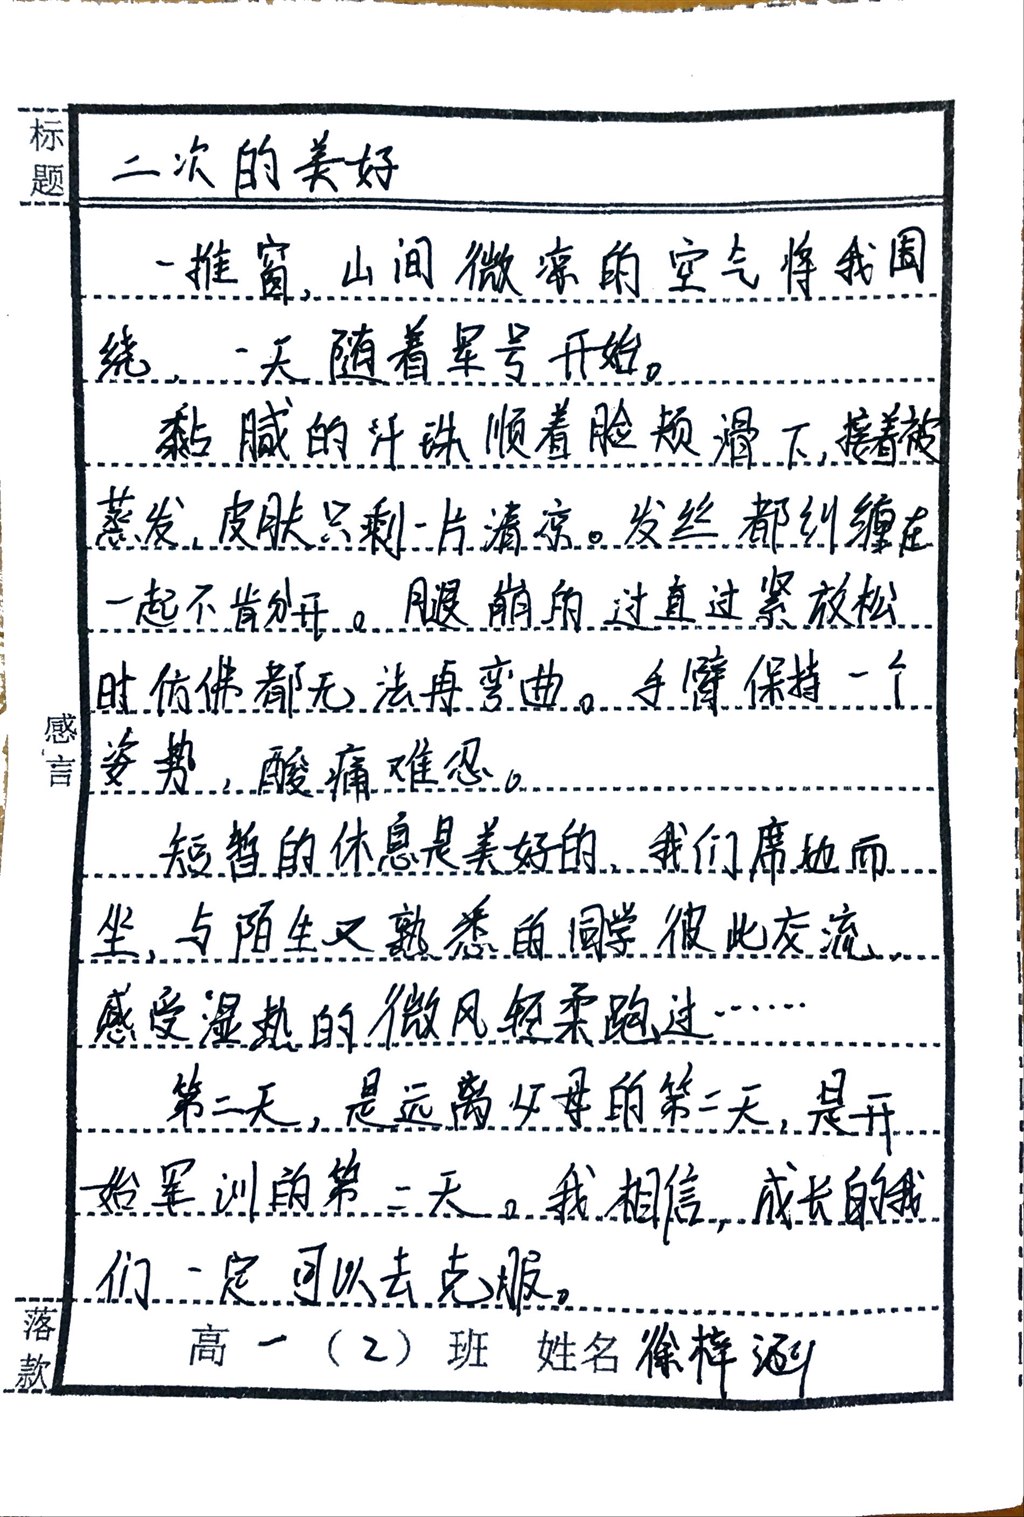 标题
二次的美好
一推窗，山间微凉的空气将我围
绕，一天随着军号开始。
黏腻的汗珠顺着脸颊滑下，接着被
蒸发，皮肤只剩一片清凉。发丝都纠缠在
一起不肯分开。腿崩的过直过紧放松
时仿佛都无法再弯曲。手臂保持一个
感言
姿势，酸痛难忍。
短暂的休息是美好的，我们席地而
坐，与陌生又熟悉的同学彼此交流，
感受湿热的微风轻柔跑过……
第二天，是远离父母的第二天，是开
始军训的第二天。我相信，成长的我
们一定可以去克服。
落款
高一（2）班 姓名徐梓涵